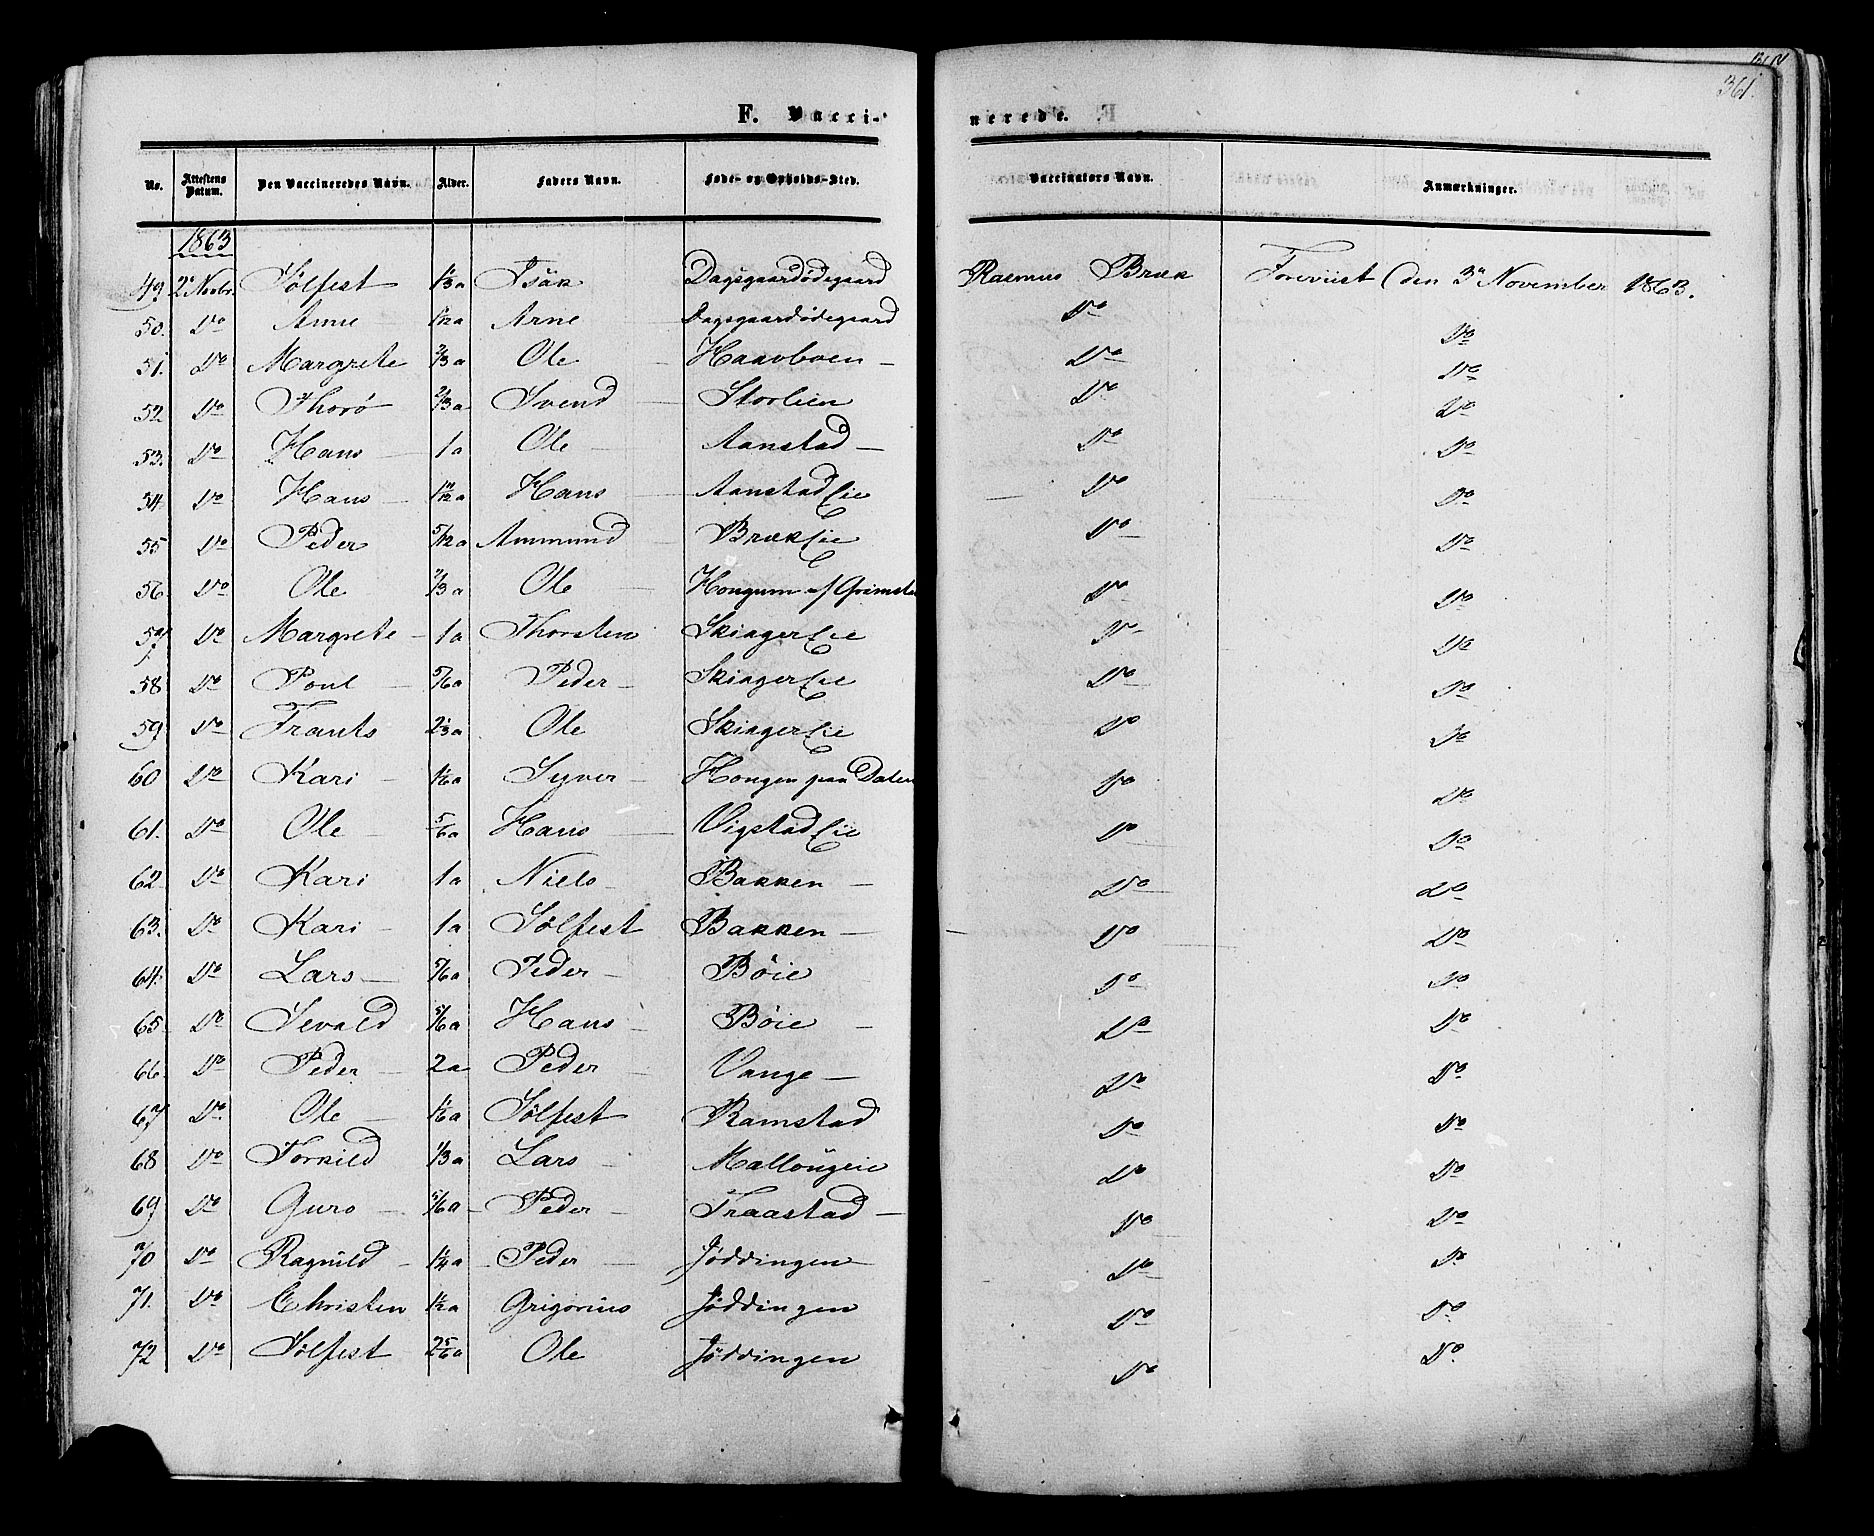 361.
F. Vaccinerede.
No. Attestens Datum. Den Vaccineredes Navn. Alder. Faders Navn. Føde- og Opholds-Sted. Vaccinators Navn. Anmærkninger.
1863
49 2 Novbr. Sølfest 1/3 a Isak Dagsgaardødegaard Rasmus Bræk Foreviist den 3 November 1863.
50. Do Anne Arne Dagsgaardødegaard Do Do
51. Do Margrete 2/3 a Ole Haavboen Do Do
52 Do Thorø 2/3 a Svend Storlien Do Do
53. Do Hans 1 a Ole Aanstad Do Do
54 Do Hans Hans Aanstad Eie Do Do
55 Do Peder 5/12 a Ammund Bræk Eie Do Do
56. Do Ole 2/3 a Ole Hongum af Grimsta Do Do
57 Do Margrete 1 a Thorsten Skinger Eie Do Do
58 Do Poul 5/6 a Peder Skinger Eie Do Do
59 Do Frants 2 1/3 a Ole Skinger Eie Do Do
60 Do Kari 1/6 a Syver Hongen paa Dalen Do Do
61. Do Ole 5/6 a Hans Vigstad Eie Do Do
62 Do Kari 1 a Niels Bakken Do Do
63. Do Kari 1 a Sølfest Bakken Do Do
64. Do Lars 5/6 a Peder Bøie Do Do
65 Do Sevald 5/6 a Hans Bøie Do Do
66. Do Peder 2 a Peder Vange Do Do
67 Do Ole 1/6 a Sølfest Ramstad Do Do
68 Do Torkild 1/3 a Lars Do Do
69 Do Guro 5/6 a Peder Traastad Do Do
70 Do Ragnild 1/4 a Peder Jøddingen Do Do
71. Do Christen 1/2 a Grigorius Jøddingen Do Do
72 Do Sølfest 2 5/6 a Ole Jøddingen Do Do